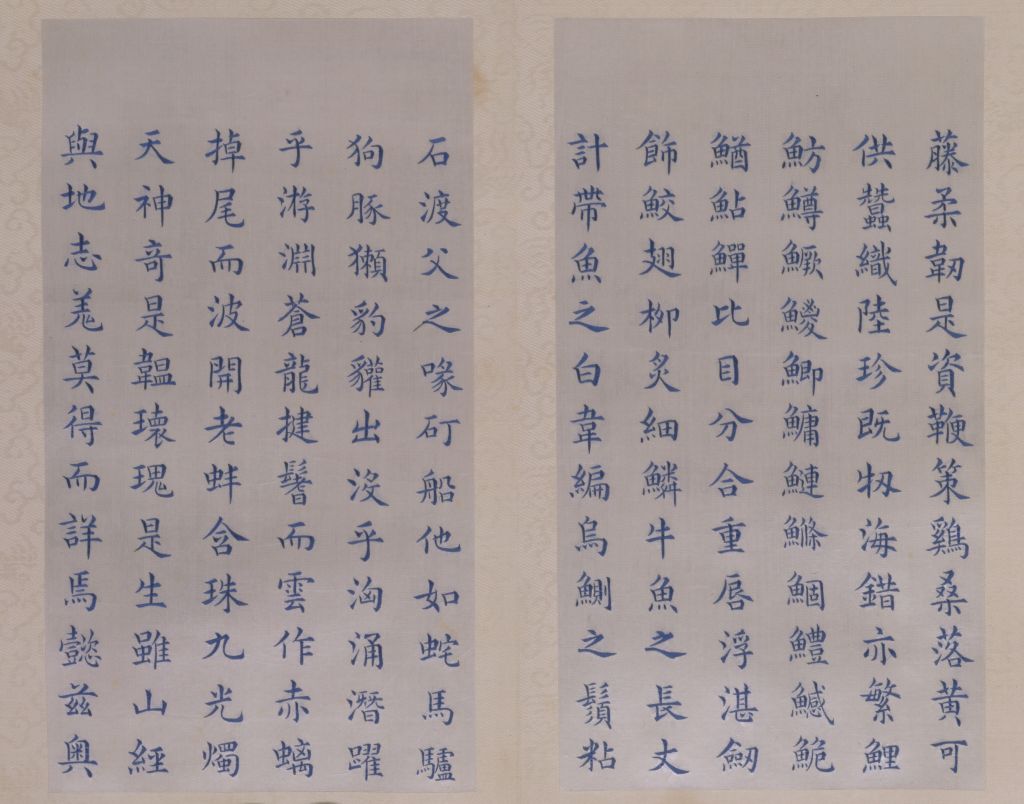 藤柔韌是資鞭策鷄桑落黄可
供蠶織陸珍既牣海錯亦繁鯉
魴鱒鱖鯼鯽鱅鰱鰷鯝鱧鱤鮠
鰌鮎鱓比目分合重唇浮湛劒
飾鮫翅柳炙細鱗牛魚之長丈
計帶魚之白韋編烏鰂之鬚粘
石渡父之喙矴船他如蛇馬驢
狗豚獺豹貛出没乎洶涌潛躍
乎游淵蒼龍揵鬐而雲作赤螭
掉尾而波開老蚌含珠九光燭
天神奇是韞瓌瑰是生雖山經
與地志羌莫得而詳焉懿兹奥